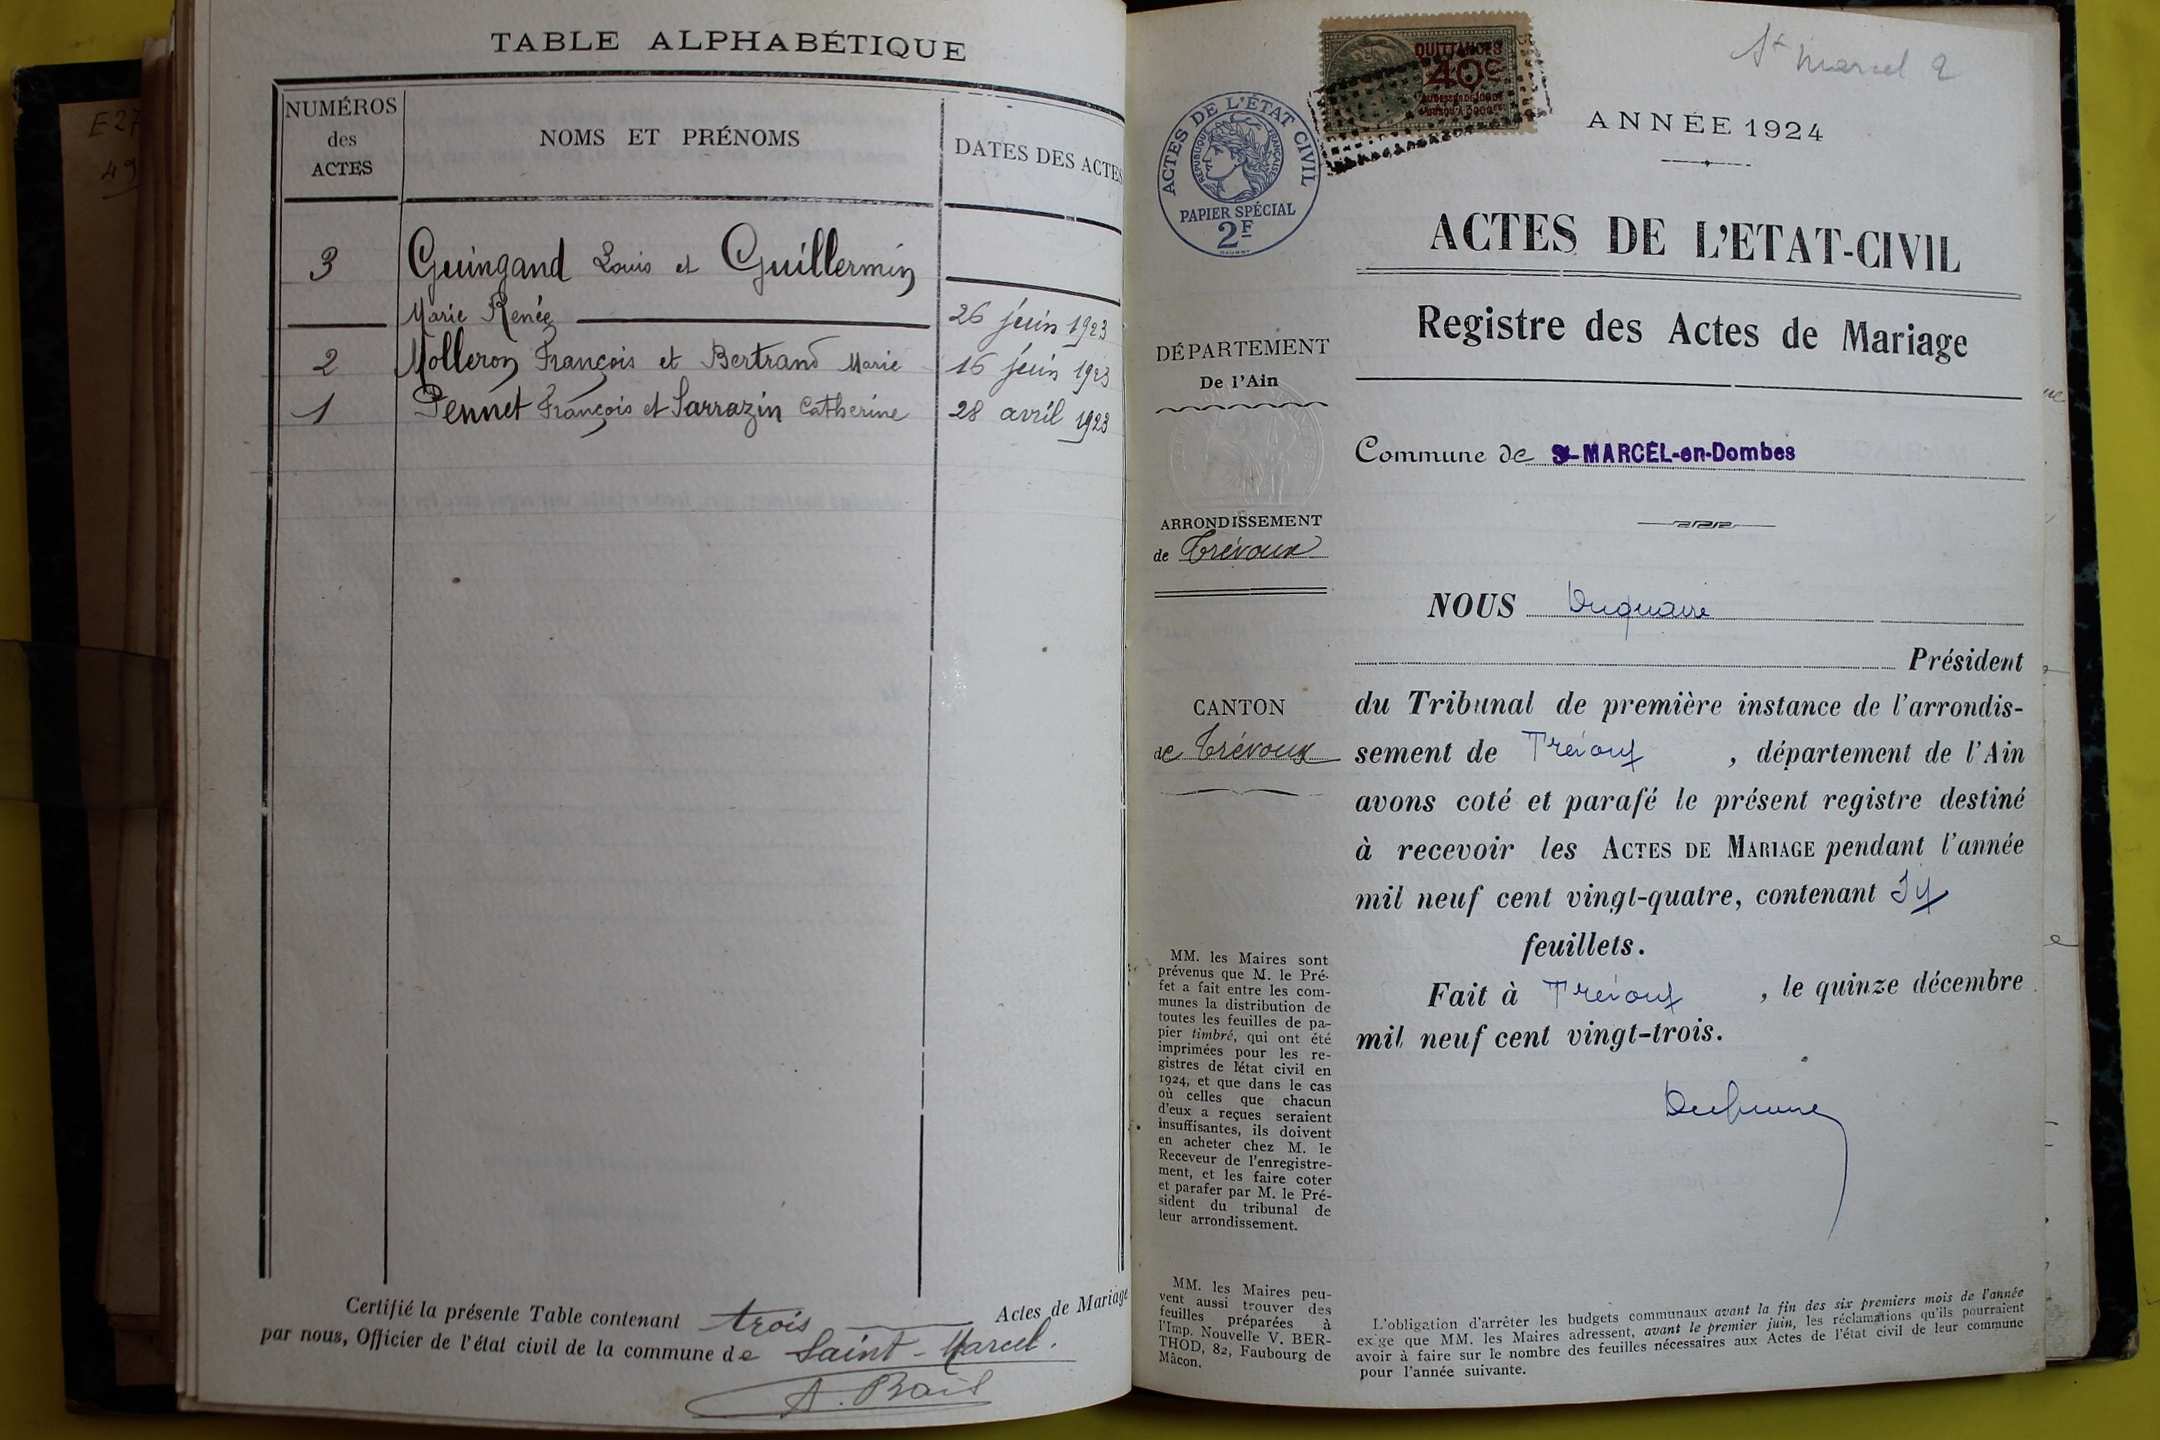 E27
49
TABLE ALPHABÉTIQUE
NUMÉROS
des
ACTES
NOMS ET PRÉNOMS
DATES DES ACTES
3 Guingand Louis et Guillermin
Marie Renée 26 juin 1923
2 Molleron François et Bertrand Marie 16 juin 1923
1 Pennet François et Sarrazin Catherine 28 avril 1923
Certifié la présente Table contenant trois Actes de Mariage
par nous, Officier de l'état civil de la commune de Saint-Marcel.
A. Bail
St Marcel 2
QUITTANCES
40c
ACTES DE L'ÉTAT CIVIL
RÉPUBLIQUE FRANÇAISE
PAPIER SPÉCIAL
2F
ANNÉE 1924
ACTES DE L'ETAT-CIVIL
Registre des Actes de Mariage
DÉPARTEMENT
De l'Ain
Commune de St-MARCEL-en-Dombes
ARRONDISSEMENT
de Trévoux
NOUS
Président
CANTON
de Trévoux
du Tribunal de première instance de l'arrondis-
sement de Trévoux, département de l'Ain
avons coté et parafé le présent registre destiné
à recevoir les ACTES DE MARIAGE pendant l'année
mil neuf cent vingt-quatre, contenant
feuillets.
Fait à Trévoux, le quinze décembre
mil neuf cent vingt-trois.
MM. les Maires sont
prévenus que M. le Pré-
fet a fait entre les com-
munes la distribution de
toutes les feuilles de pa-
pier timbré, qui ont été
imprimées pour les re-
gistres de l'état civil en
1924, et que dans le cas
où celles que chacun
d'eux a reçues seraient
insuffisantes, ils doivent
en acheter chez M. le
Receveur de l'enregistre-
ment, et les faire coter
et parafer par M. le Pré-
sident du tribunal de
leur arrondissement.
MM. les Maires peu-
vent aussi trouver des
feuilles préparées à
l'Imp. Nouvelle V. BER-
THOD, 82, Faubourg de
Mâcon.
L'obligation d'arrêter les budgets communaux avant la fin des six premiers mois de l'année
exige que MM. les Maires adressent, avant le premier juin, les réclamations qu'ils pourraient
avoir à faire sur le nombre des feuilles nécessaires aux Actes de l'état civil de leur commune
pour l'année suivante.